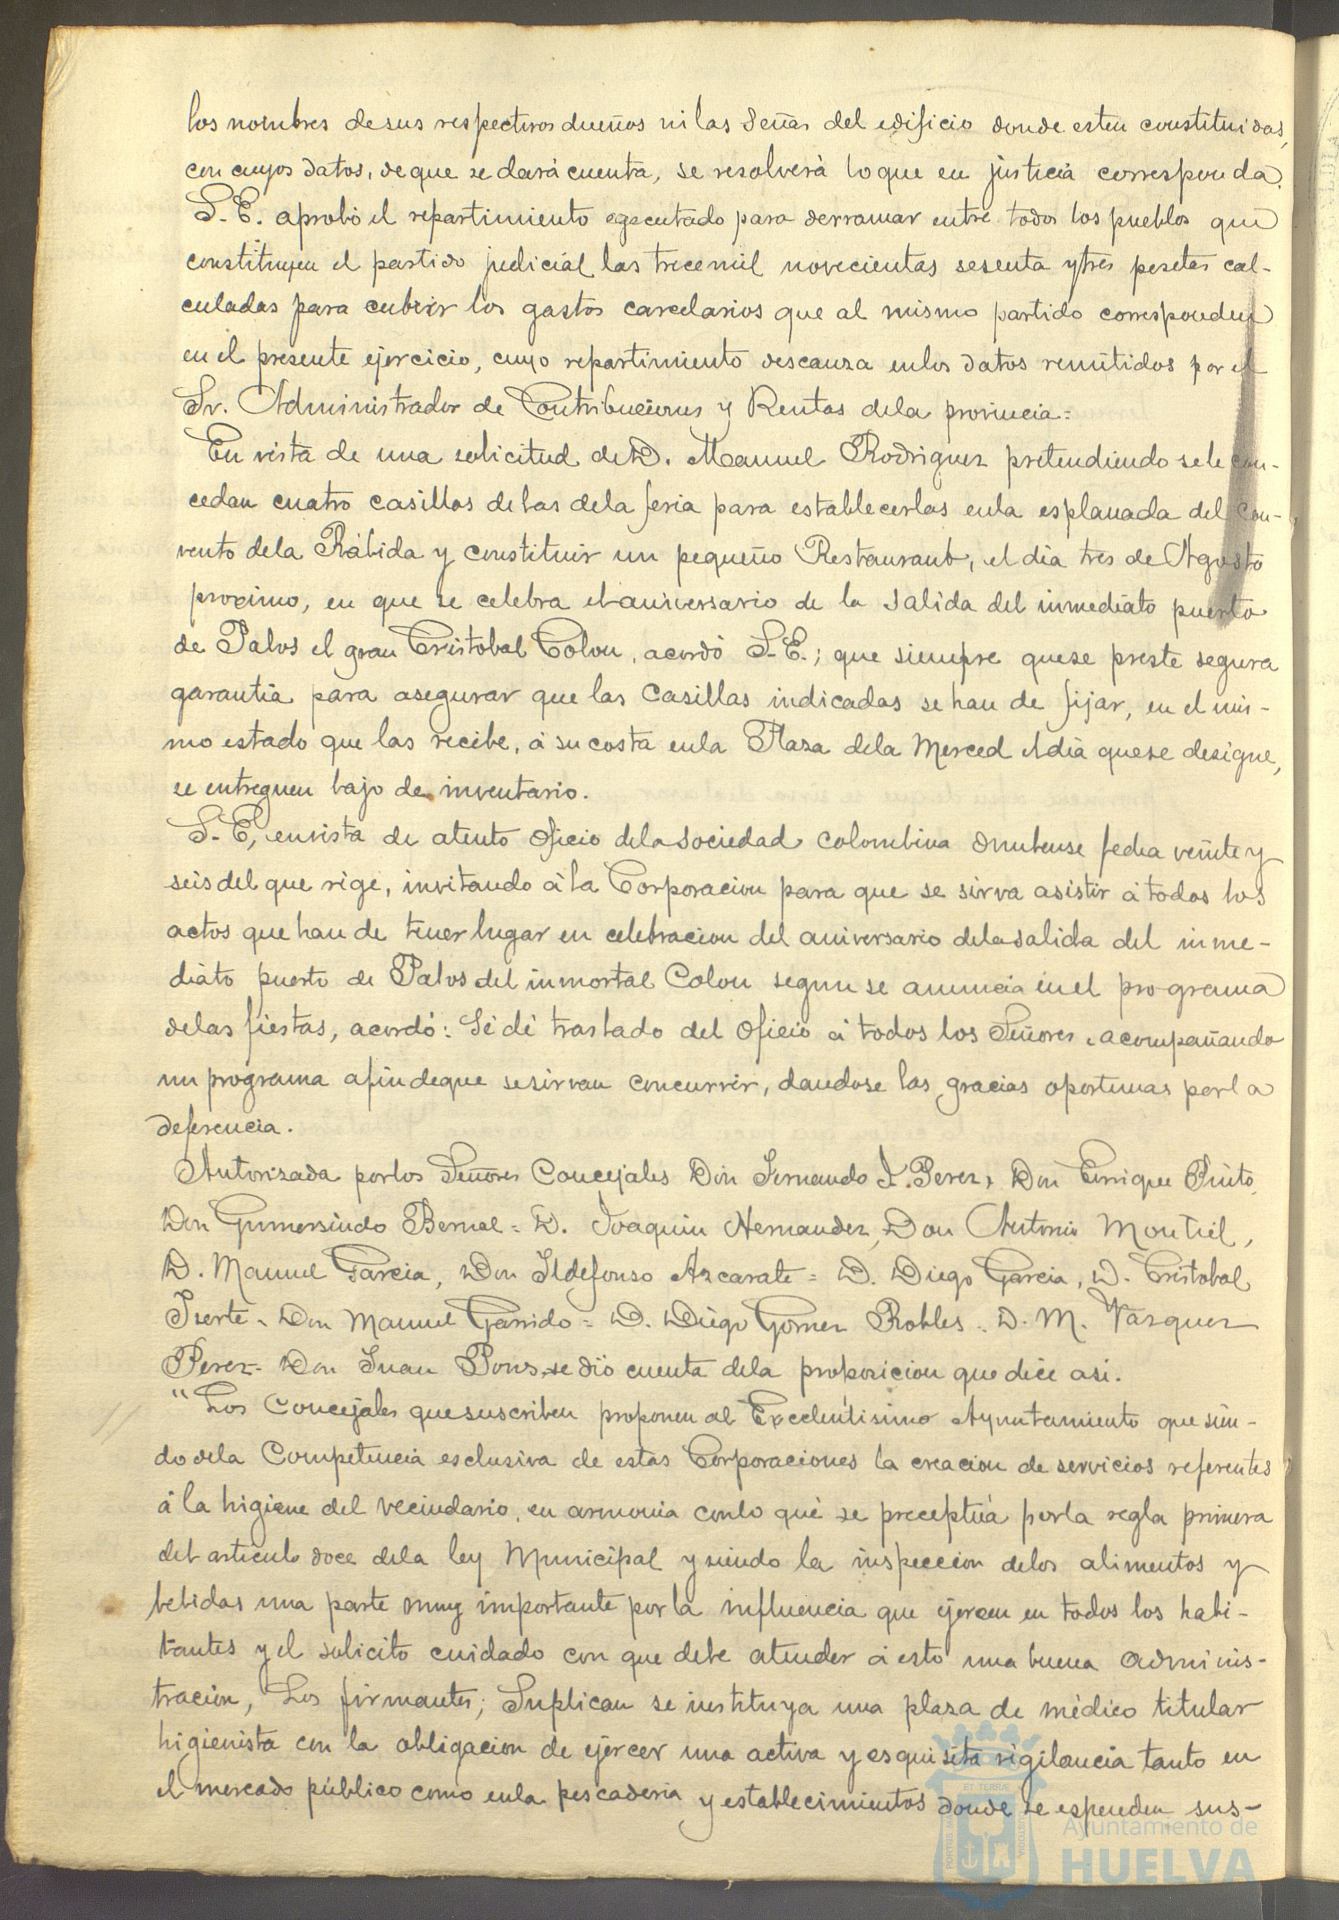 los nombres de sus respectivos dueños ni las señas del edificio donde esten constituidas,
con cuyos datos, de que se dará cuenta, se resolverá lo que en justicia corresponda.
S. E. aprobó el repartimiento egecutado para derramar entre todos los pueblos que
constituyen el partido judicial las trece mil novecientas sesenta y tres pesetas cal-
culadas para cubrir los gastos carcelarios que al mismo partido corresponden
en el presente ejercicio, cuyo repartimiento descanza en los datos remitidos por el
Sr. Administrador de Contribuciones y Rentas de la provincia=
En vista de una solicitud de D. Manuel Rodriguez pretendiendo se le con-
cedan cuatro casillas de las de la feria para establecerlas en la esplanada del Con-
vento de la Rábida y constituir un pequeño Restaurant, el dia tres de Agosto
proximo, en que se celebra el aniversario de la salida del inmediato puerto
de Palos el gran Cristobal Colon, acordó S. E.; que siempre que se preste segura
garantia para asegurar que las Casillas indicadas se han de fijar, en el mis-
mo estado que las recibe, á su costa en la Plaza de la Merced el dia que se designe,
se entreguen bajo de inventario.
S. E, en vista de atento oficio de la sociedad colombina onubense fecha veinte y
seis del que rige, invitando á la Corporacion para que se sirva asistir á todos los
actos que han de tener lugar en celebracion del aniversario de la salida del inme-
diato puerto de Palos del inmortal Colon segun se anuncia en el programa
de las fiestas, acordó: Se dé traslado del oficio á todos los Señores, acompañando
un programa a fin de que se sirvan concurrir, dandose las gracias oportunas por la
deferencia.
Autorizada por los Señores Concejales Don Fernando J. Perez, Don Enrique Pinto,
Don Gumersindo Bernal = D. Joaquin Hernandez, Don Antonio Montiel,
D. Manuel Garcia, Don Ildefonso Azcarate = D. Diego Garcia, D. Cristobal
Iserte - Don Manuel Garrido = D. Diego Gomez Robles. D. M. Vazquez
Perez - Don Juan Pons, se dió cuenta de la proposicion que dice asi.
"Los Concejales que suscriben proponen al Excelentisimo Ayuntamiento que sien-
do de la Competencia esclusiva de estas Corporaciones la creacion de servicios referentes
á la higiene del vecindario, en armonia con lo que se preceptúa por la regla primera
del articulo doce de la ley Municipal y siendo la inspeccion de los alimentos y
bebidas una parte muy importante por la influencia que ejercen en todos los habi-
tantes y el solicito cuidado con que debe atender á esto una buena adminis-
tración, Los firmantes; Suplican se instituya una plaza de médico titular
higienista con la obligacion de ejercer una activa y esquisita vigilancia tanto en
el mercado público como en la pescaderia y establecimientos donde se espenden sus-
Ayuntamiento de
HUELVA